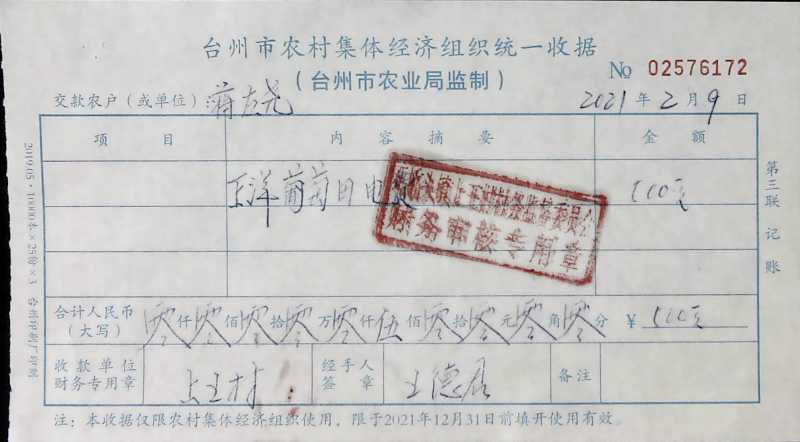 台州市农村集体经济组织统一收据
（台州市农业局监制）
№ 02576172
交款农户（或单位） 蒋 2021 年 2 月 9 日
项目 内容摘要 金额
洋葡萄田电 500元
财务审核专用章
合计人民币（大写） 零仟零佰零拾零万零仟伍佰零拾零元零角零分 ￥ 500元
收款单位财务专用章 上王村 经手人签章 王德 备注
注：本收据仅限农村集体经济组织使用，限于2021年12月31日前填开使用有效。
第三联 记账
2019.05·10000本×25份×3 台州印刷厂印制